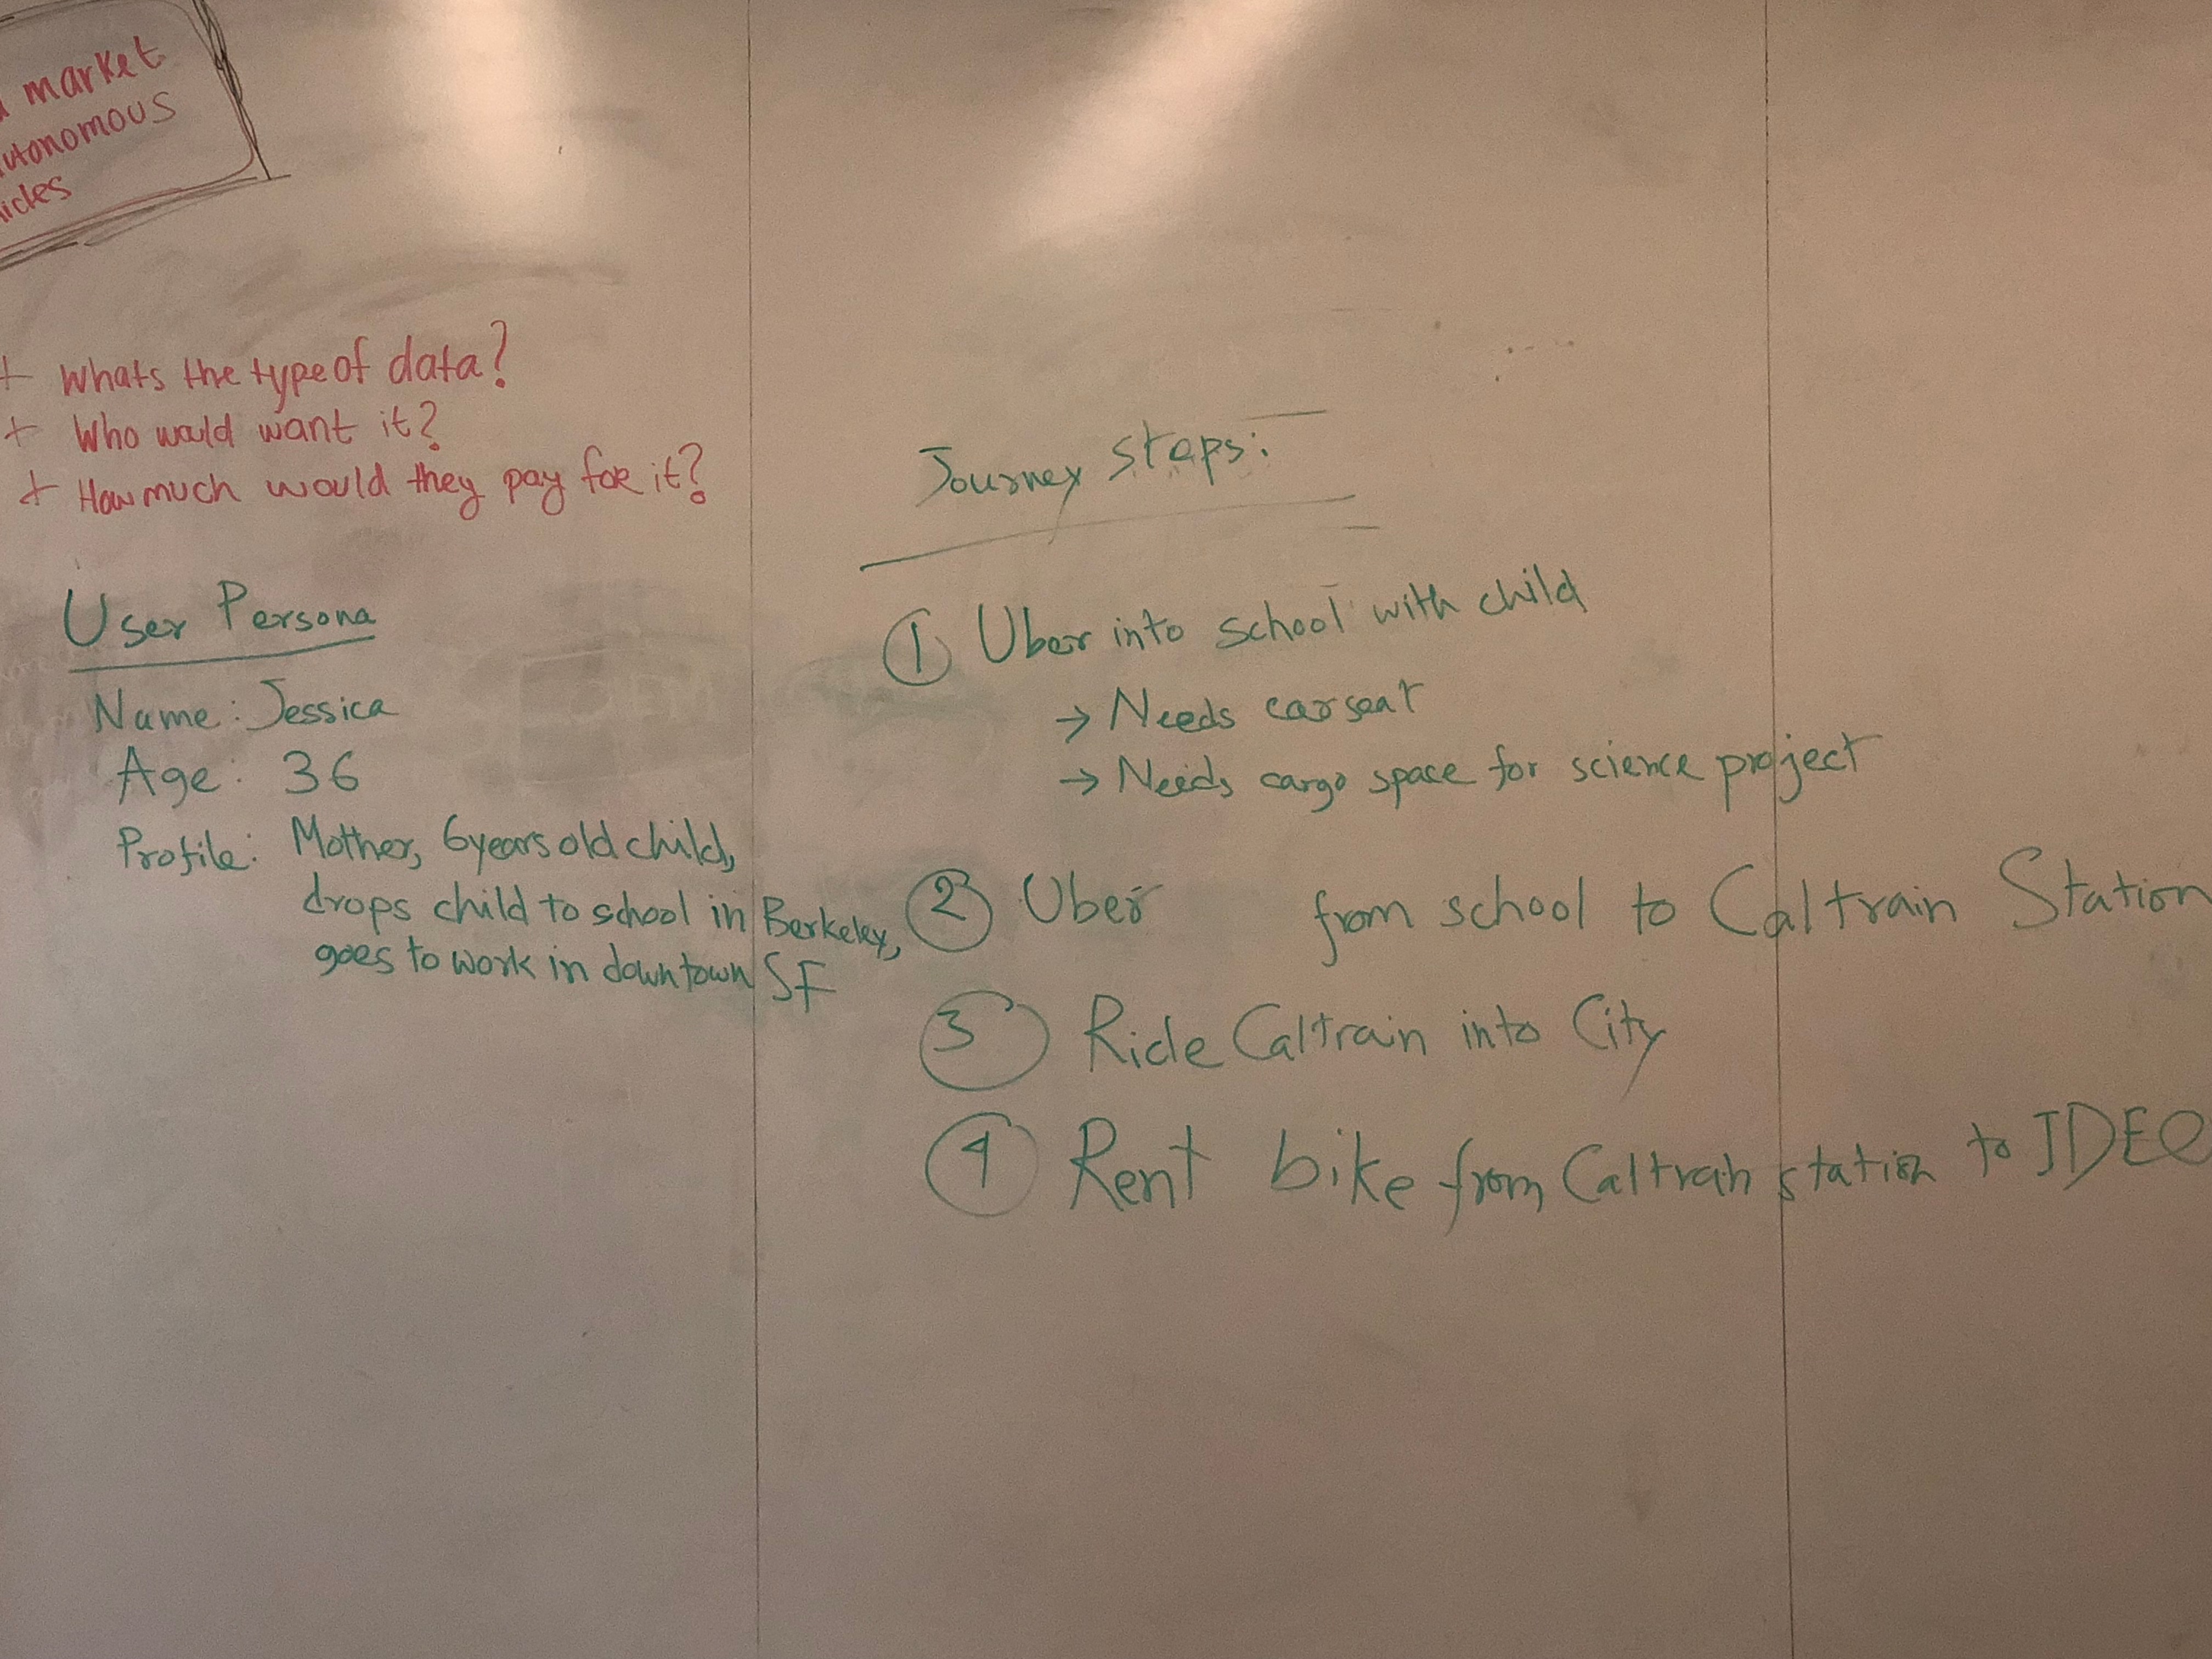 market
utonomous
icles
+ Whats the type of data?
+ Who would want it?
+ How much would they pay for it?
User Persona
Name: Jessica
Age: 36
Profile: Mother, 6 years old child,
drops child to school in Berkeley,
goes to work in downtown SF
Journey Steps:
1 Uber into school with child
→ Needs carseat
→ Needs cargo space for science project
2 Uber from school to Caltrain Station
3 Ride Caltrain into City
4 Rent bike from Caltrain station to IDEO